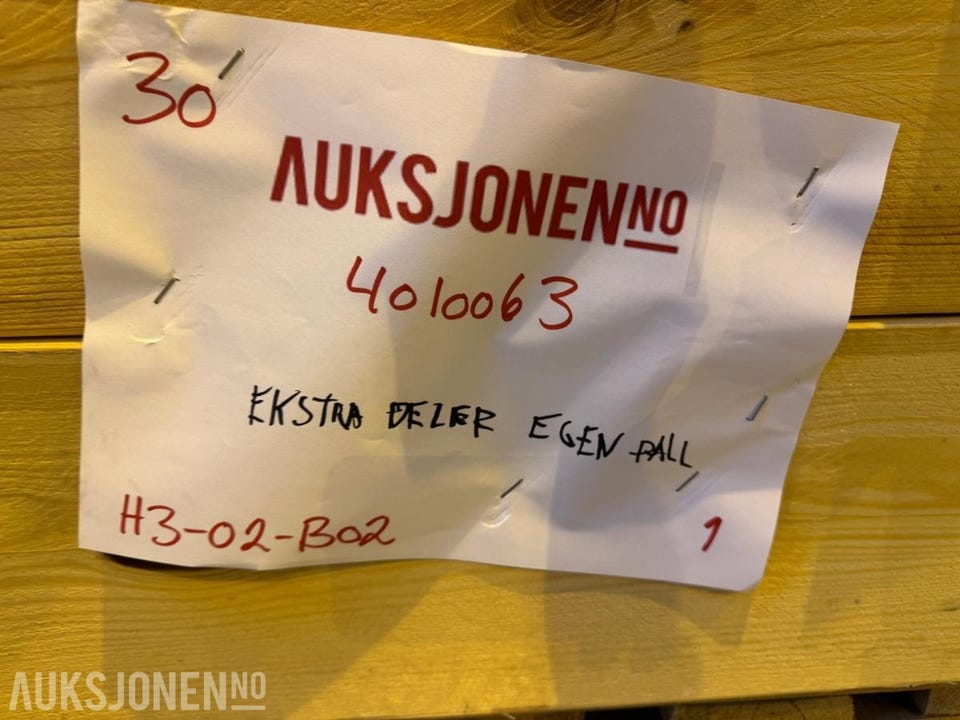 30
AUKSJONEN NO
4010063
EKSTRA DELER EGEN PALL
H3-02-B02
1
AUKSJONEN NO